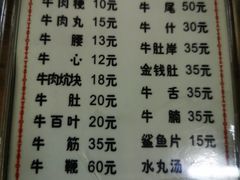 牛肉粳 10元
牛肉丸 15元
牛腰 13元
牛心 12元
牛肉炕块 18元
牛肚 20元
牛百叶 20元
牛筋 35元
牛鞭 60元
牛尾 50元
牛什 30元
牛肚岸 35元
金钱肚 35元
牛舌 35元
牛腩 35元
鲨鱼片 15元
水丸汤